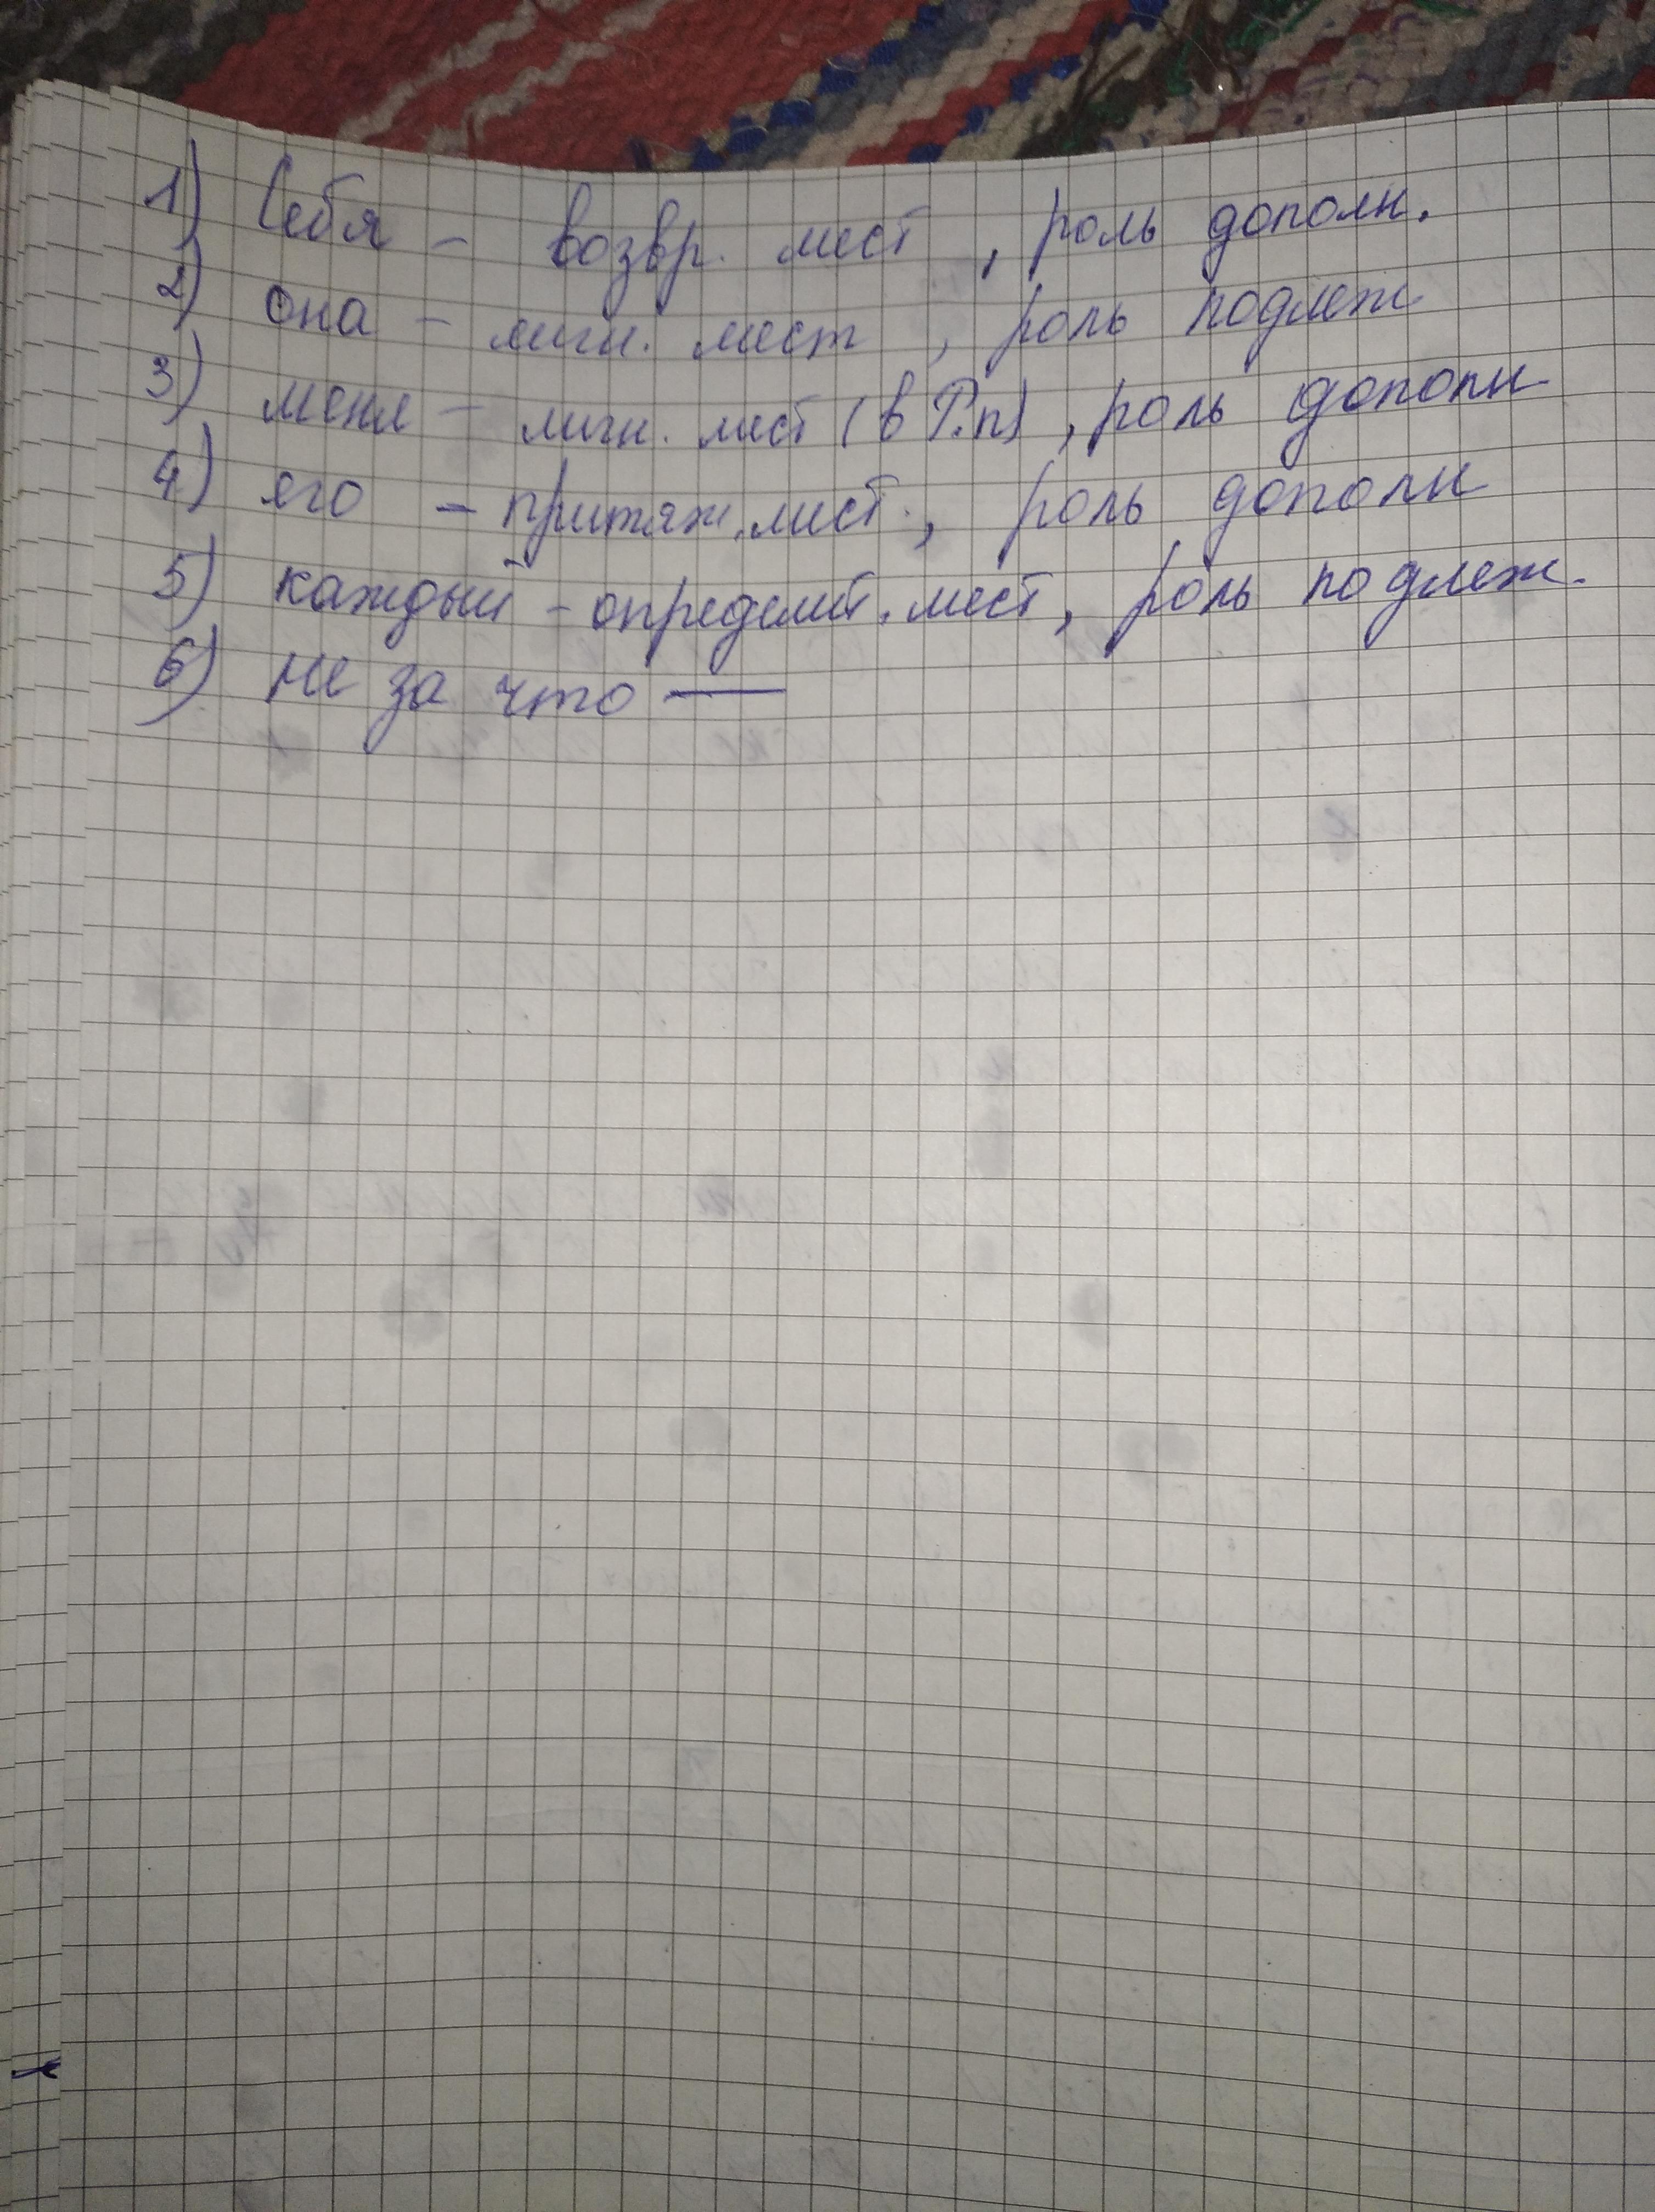 1) Себя – возвр. мест, роль дополн.
2) она – личн. мест, роль подлеж
3) меня – личн. мест (в Р.п), роль дополн
4) его – притяж. мест., роль дополн
5) каждый – определит. мест, роль подлеж.
6) не за что —